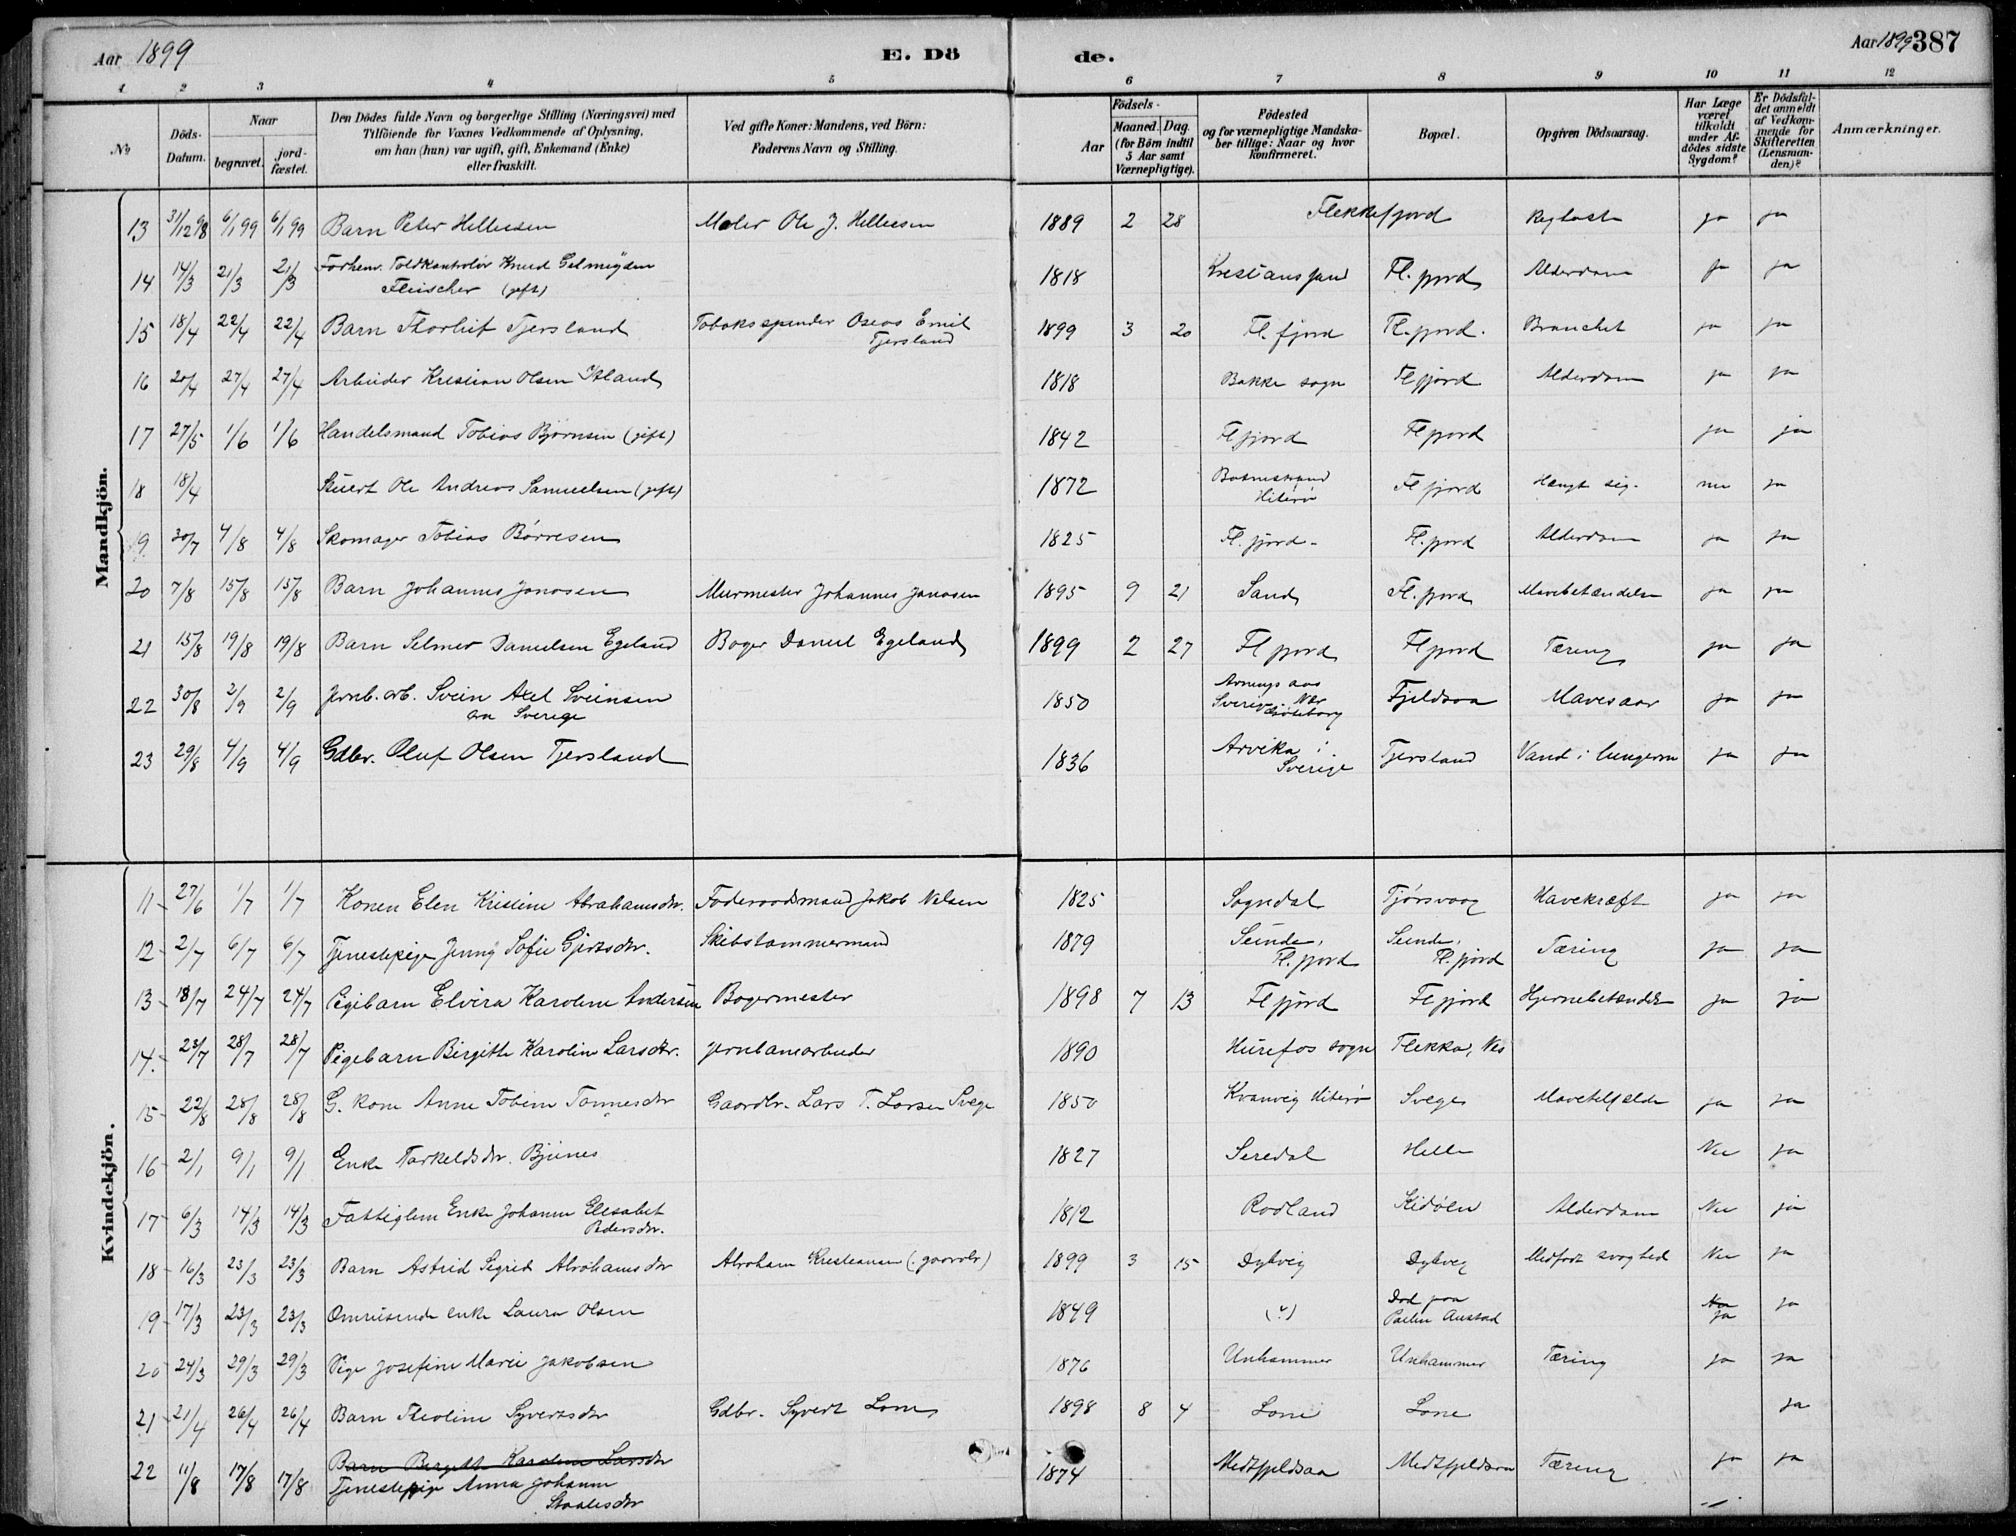 Aar 1899 E. Dö de. Aar 1899 387
1 2 3 4 5 6 7 8 9 10 11 12
№
Döds-Datum.
Naar
begravet.
jord-fæstet.
Den Dödes fulde Navn og borgerlige Stilling (Næringsvei) med
Tilföiende for Voxnes Vedkommende af Oplysning,
om han (hun) var ugift, gift, Enkemand (Enke)
eller fraskilt.
Ved gifte Koner: Mandens, ved Börn:
Faderens Navn og Stilling.
Födsels-
Aar
Maaned. Dag.
(for Börn indtil
5 Aar samt
Værnepligtige).
Födested
og for værnepligtige Mandska-
ber tillige: Naar og hvor
konfirmeret.
Bopæl.
Opgiven Dödsaarsag.
Har Læge
været
tilkaldt
under Af-
dödes sidste
Sygdom?
Er Dödsfal-
det anmeldt
af Vedkom-
mende for
Skifteretten
(Lensman-
den)?
Anmærkninger.
Mandkjön.
13 31/12 98 6/1 99 6/1 99 Barn Peter Hellesen Maler Ole J. Hellesen 1889 2 28 Flekkefjord ja ja
14 14/3 21/3 21/3 Forhenv. Toldkontrolør Knud Gelmeyden
Fleischer (gift) 1818 Kristiansand Fl. fjord Alderdom ja ja
15 18/4 22/4 22/4 Barn Thorleif Tjersland Tobaksspinder Oscar Emil
Tjersland 1899 3 20 Fl. fjord Fl. fjord. Bronchit ja ja
16 20/4 27/4 27/4 Arbeider Kristian Olsen 1818 Bakke sogn Fl fjord Alderdom ja ja
17 27/5 1/6 1/6 Handelsmand Tobias Bjørnsen (gift) 1842 Fl fjord Fl fjord ja ja
18 18/4 Stuert Ole Andreas Samuelsen (gift) 1872
Hiterø Fl fjord Hængt sig. nei ja
19 30/7 4/8 4/8 Skomager Tobias Børresen 1825 Fl. fjord Fl. fjord Alderdom ja ja
20 7/8 15/8 15/8 Barn Johannes Jonasen Murmester Johannes Jonasen 1895 9 21 Sand Fl. fjord Mavebetændelse ja ja
21 15/8 19/8 19/8 Barn Selmer Danielsen Egeland Bager Daniel Egeland 1899 2 27 Fl fjord Fl fjord Tæring ja ja
22 30/8 2/9 2/9 Jernb. arb. Svein Axel Sveinsen
fra Sverige 1850
Sverige Nær
Gøteborg Fjeldsaa Mavesaar ja ja
23 29/8 4/9 4/9 Gdbr. Oluf Olsen Tjersland 1836 Arvika i
Sverige Tjersland Vand i lungerne ja ja
Kvindekjön.
11 27/6 1/7 1/7 Konen Elen Kristine Abrahamsdtr. Føderaadsmand Jakob Nilsen 1825 Sogndal Tjørsvaag Mavekræft ja ja
12 2/7 6/7 6/7 Tjenestepige Jenny Sofie Gjertsdtr. Skibstømmermand 1879 Seinde,
Fl. fjord Seinde,
Fl. fjord Tæring ja ja
13 18/7 24/7 24/7 Pigebarn Elvira Karoline Andersen Bagermester 1898 7 13 Fl fjord Fl fjord Hjernebetændelse ja ja
14 23/7 28/7 28/7 Pigebarn Birgitte Karoline Larsdtr. Jernbanarbeider 1890 Hurefos sogn Flikka, Nes
15 22/8 28/8 28/8 G. kone Anne Tobine Tønnesdtr Gaardbr. Lars T. Larsen Svege 1850 Kvanvig Hiterø Svege Mavetilfælde ja ja
16 2/1 9/1 9/1 Enke Tarkeldsdtr. Bjunes 1827 Siredal Helle Nei ja
17 6/3 14/3 14/3 Fattiglem Enke Johanne Elisabet
Pedersdtr. 1812 Rødland Kidølen Alderdom Nei ja
18 16/3 23/3 23/3 Barn Astrid Sigrid Abrahamsdtr Abraham Kristiansen (gaardbr) 1899 3 15 Dybvig Dybvig Medfødt svaghed Nei ja
19 17/3 23/3 23/3 Omreisende enke Laura Olsen 1849 (?) Død paa
Austad ja ja
20 24/3 29/3 29/3 Pige Josefine Marie Jakobsen 1876 Unhammer Unhammer Tæring ja ja
21 21/4 26/4 26/4 Barn Theoline Syvertsdtr Gdbr. Syvert Lone 1898 8 4 Lone Lone ja
22 11/8 17/8 17/8 Barn Birgitte Karoline Larsdtr
Tjenestepige Anna Johanne
Staalesdtr 1874 Midtfjeldsaa Midtfjeldsaa Tæring ja ja